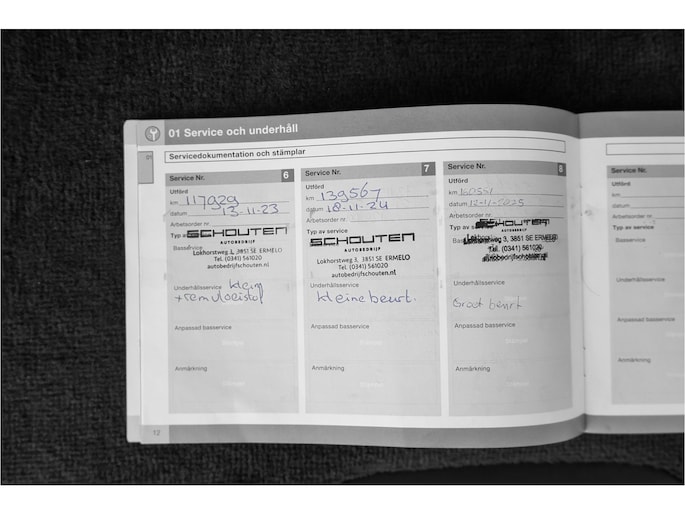 01 Service och underhåll
01
Servicedokumentation och stämplar
Service Nr. 6
Utförd
km 117929
datum 13-11-23
Arbetsorder nr.
Typ av service
SCHOUTEN
AUTOBEDRIJF
Basservice
Lokhorstweg 3, 3851 SE ERMELO
Tel. (0341) 561020
autobedrijfschouten.nl
Underhållsservice klein
+ remvloeistof
Anpassad basservice
Stämpel
Anmärkning
Stämpel
Service Nr. 7
Utförd
km 139567
datum 18-11-24
Arbetsorder nr.
Typ av service
SCHOUTEN
AUTOBEDRIJF
Lokhorstweg 3, 3851 SE ERMELO
Tel. (0341) 561020
autobedrijfschouten.nl
Underhållsservice
kleine beurt.
Anpassad basservice
Stämpel
Anmärkning
Stämpel
Service Nr. 8
Utförd
km
datum
Arbetsorder nr.
Typ av
SCHOUTEN
AUTOBEDRIJF
Basservice
Lokhorstweg 3, 3851 SE ERMELO
Tel. (0341) 561020
autobedrijfschouten.nl
Underhållsservice
Groot beurt
Anpassad basservice
Stämpel
Anmärkning
Stämpel
Service Nr.
Utförd
km
datum
Arbetsorder nr.
Typ av service
Basservice
Underhållsservice
Anpassad basservice
Anmärkning
12